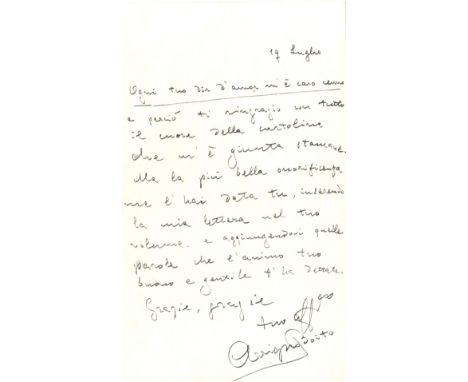 19 Luglio
Ogni tuo dir d'amor m'è caro cenno
e perciò ti ringrazio con tutto
il cuore della cartolina
che m'è giunta stamane.
Ma la più bella onorificenza
me l'hai data tu, inserendo
la mia lettera nel tuo
volume e aggiungendovi quelle
parole che l'animo tuo
buono e gentile t'ha dettate.
Grazie, grazie
tuo aff
Arrigo Boito